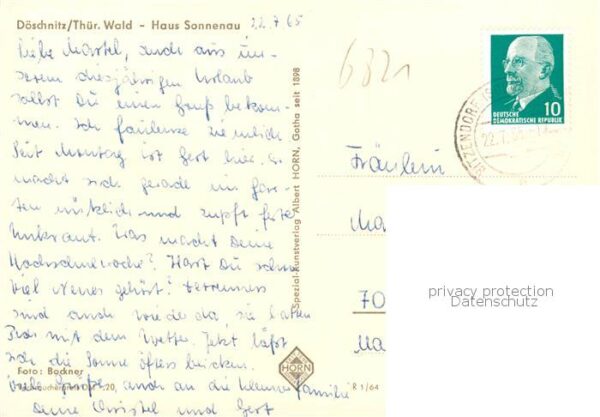 Döschnitz/Thür. Wald - Haus Sonnenau
22.7.65
Liebe Martel, auch aus un-
serem diesjährigen Urlaub
sollst Du einen Gruß bekom-
men. Ich faulenze ziemlich
Seit Montag ist Gert hier. Er
macht sich gerade im Gar-
ten nützlich und zupft feste
Unkraut. Was macht Deine
Hochschulwoche? Hast Du schon
viel Neues gehört?
sind auch wieder da, sie hatten
Pech mit dem Wetter. Jetzt läßt
sich die Sonne öfters blicken.
Viele Grüße auch an die Familie
Deine Christel und Gert
Foto: Bockner
Spezial-Kunstverlag Albert HORN, Gotha seit 1898
HORN
R 1/64
6821
DEUTSCHE
DEMOKRATISCHE REPUBLIK
10
22.7.
Fräulein
Ma
70
privacy protection
Datenschutz